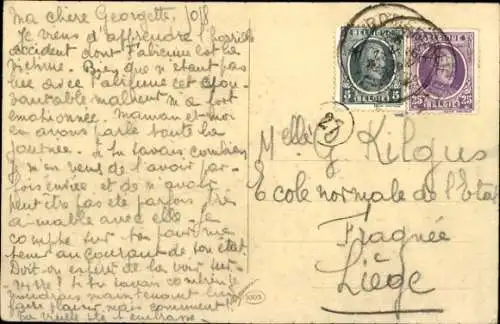 Ma chère Georgette, 10/8
Je viens d'apprendre l'horrible
accident dont Fabienne est la
victime. Bien que n'étant pas
liée avec Fabienne cet épou-
vantable malheur m'a fort
émotionnée. Maman et moi
en avons parlé toute la
journée. Si tu savais combien
je m'en veux de l'avoir par-
fois enviée et de n'avoir
peut être pas été parfois très
aimable avec elle. Je
compte sur toi pour me
tenir au courant de son état.
Doit-on espérer de la voir sur-
vivre? Si tu savais comme je
voudrais maintenant lui
faire plaisir, mais comment?
Ta vieille qui t'embrasse
BELGIE
5 5
BELGIQUE
25 25
25
Melle G. Kilgus
Ecole normale de l'Etat
Fragnée
Liège